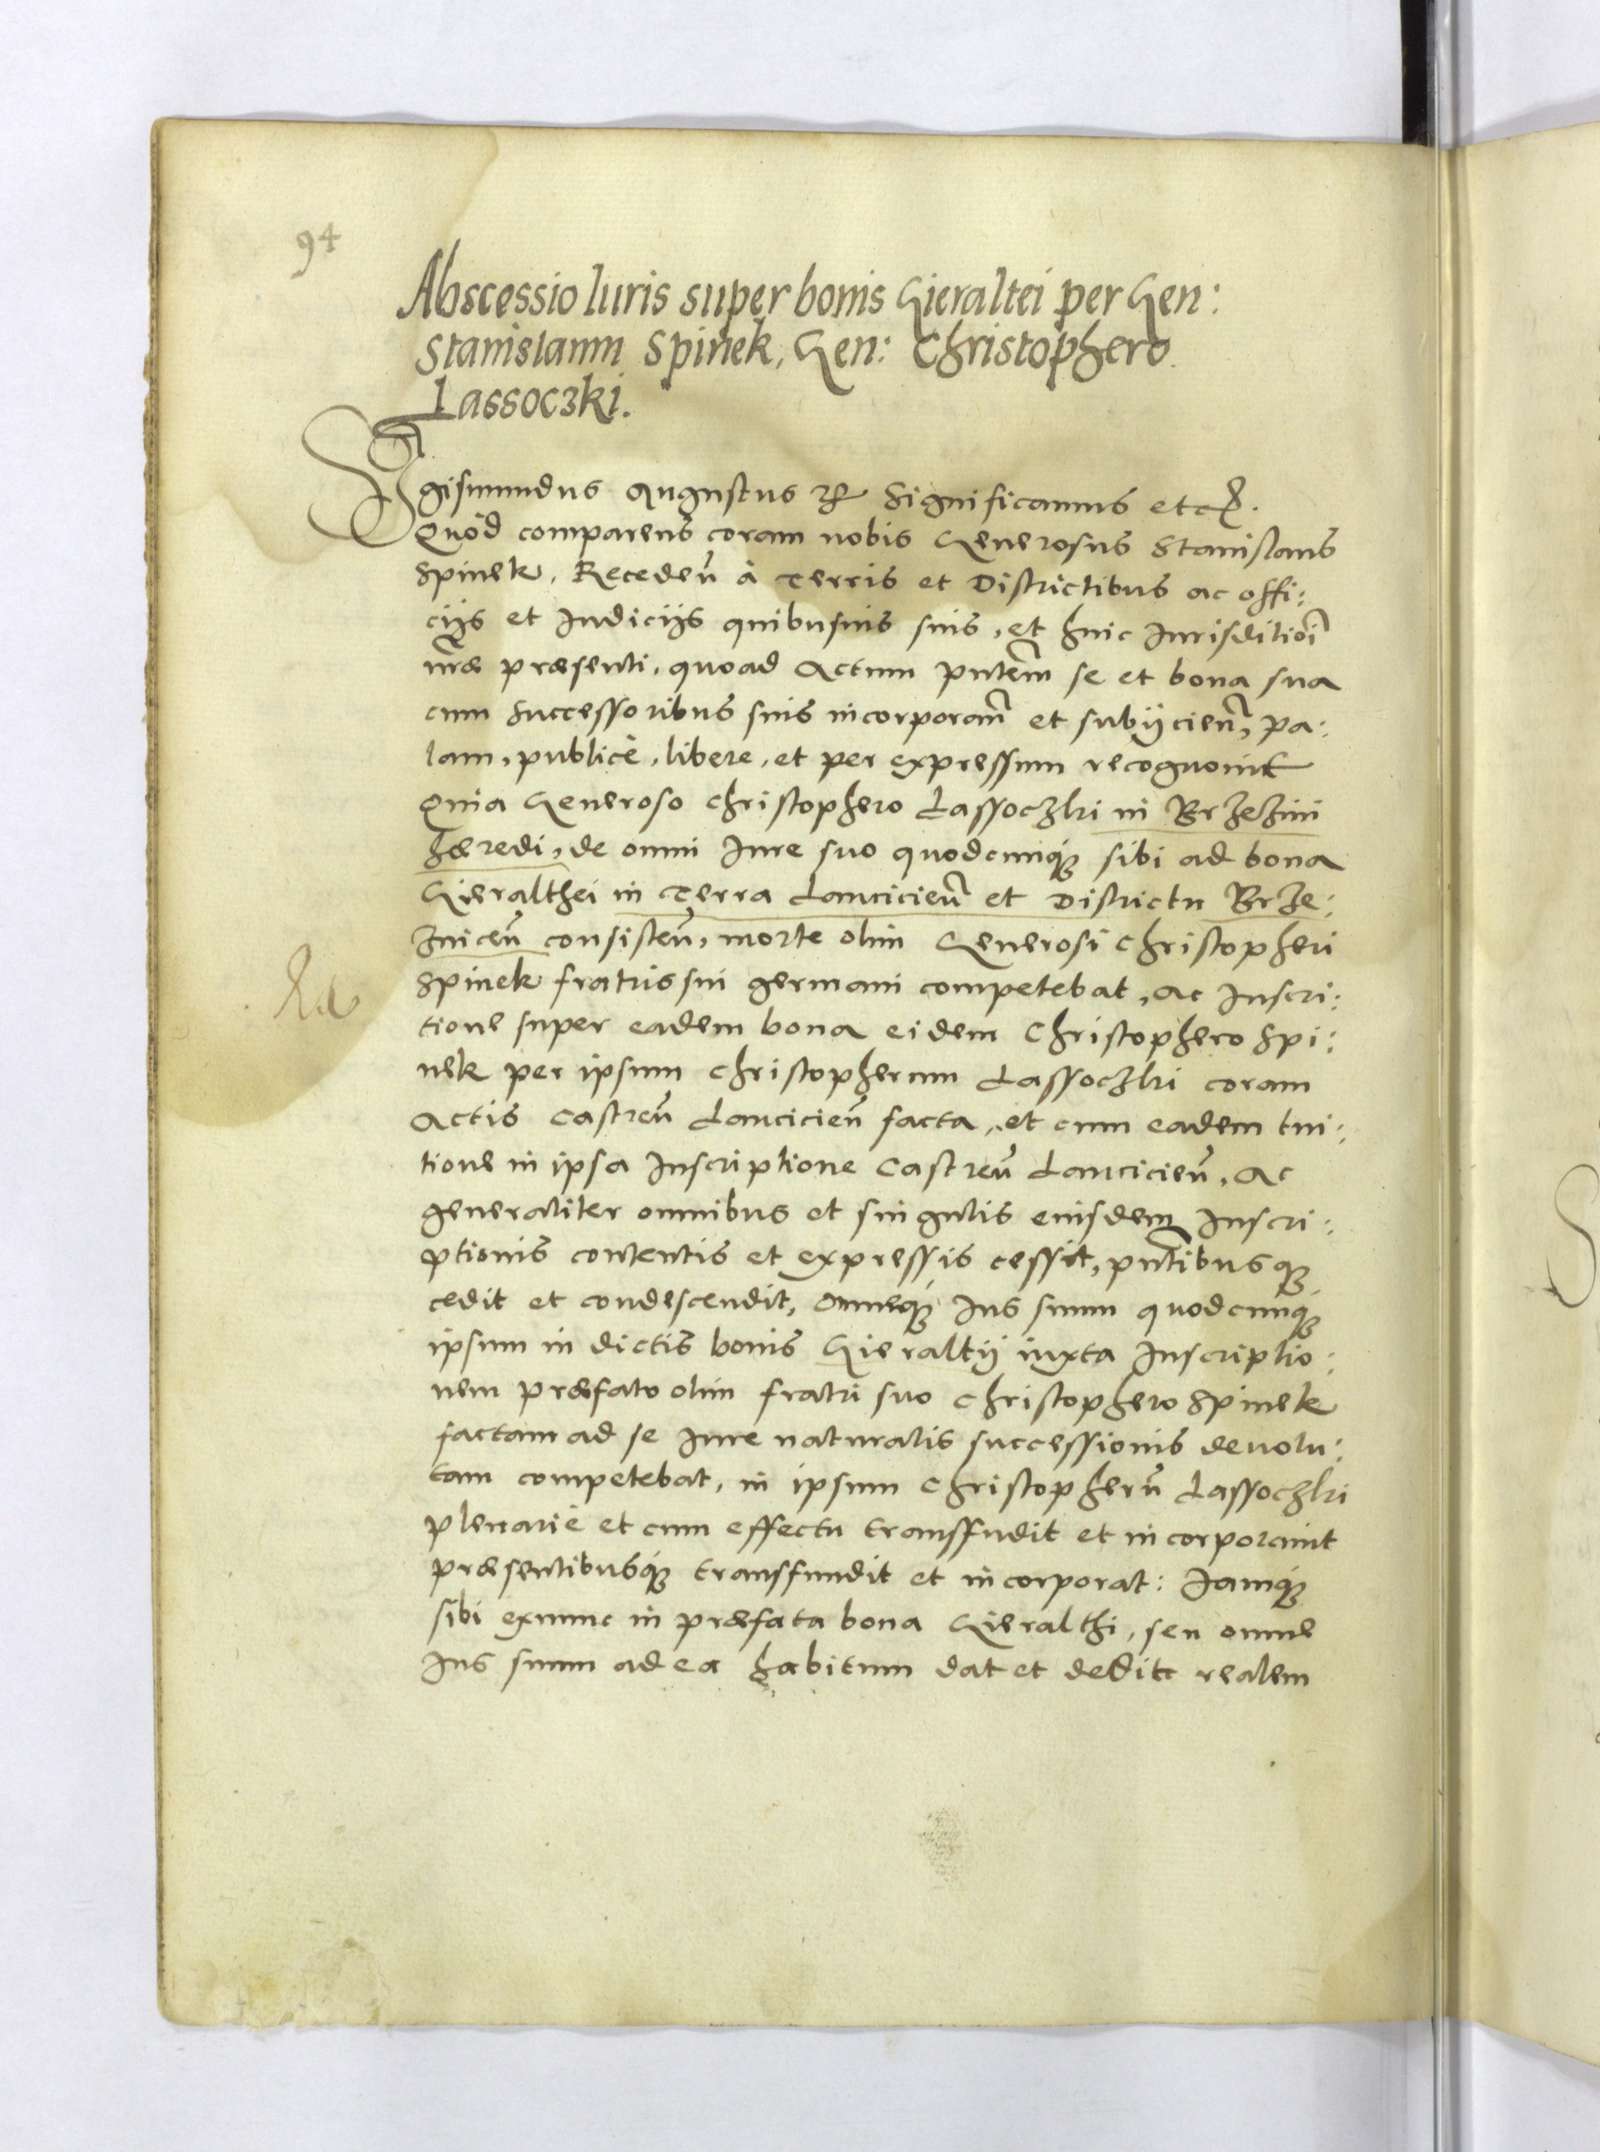 94
Abscessio Iuris super bonis Gieraltei per Gen:
Stanislaum Spinek, Gen: Christophero
Lassoczki.
Sigismundus Augustus Rx Significamus etc.
Quod comparens coram nobis Generosus Stanislaus
Spinek, Receden̄ à Terris et Districtibus ac offi:
cijs et Iudicijs quibusuis suis, et huic Iurisditioī
nr̄æ præsenti, quoad Actum pn̄tem se et bona sua
cum successoribus suis incorporan̄ et subijcien̄, pa:
lam, publicè, libere, et per expressum recognouit
Quia Generoso Christophero Lassoczki in Brzezini
hæredi, de omni Iure suo quodcunq; sibi ad bona
Gieralthei in Terra Lancicien̄ et Districtu Brze:
zinicen̄ consisten̄, morte olim Generosi Christopheri
Spinek fratris sui germani competebat, Ac Inscri:
tione super eadem bona eidem Christophero Spi:
nek per ipsum Christopherum Lassoczki coram
Actis Castren̄ Lancicien̄ facta, et cum eadem tui:
tione in ipsa Inscriptione Castren̄ Lancicien̄, Ac
generaliter omnibus et singulis eiusdem Inscri:
ptionis contentis et expressis cessit, pn̄tibusq;
cedit et condescendit, omneq; Ius suum quodcunq;
ipsum in dictis bonis Gieraltij iuxta Inscriptio:
nem præfato olim fratri suo Christophero Spinek
factam ad se Iure naturalis successionis deuolu:
tam competebat, in ipsum Christopherū Lassoczki
plenariè et cum effectu transfudit et incorporauit
præsentibusq; transfundit et incorporat: Iamq;
sibi exnunc in præfata bona Gieralthi, seu omne
Ius suum ad ea habitum dat et dedit realem